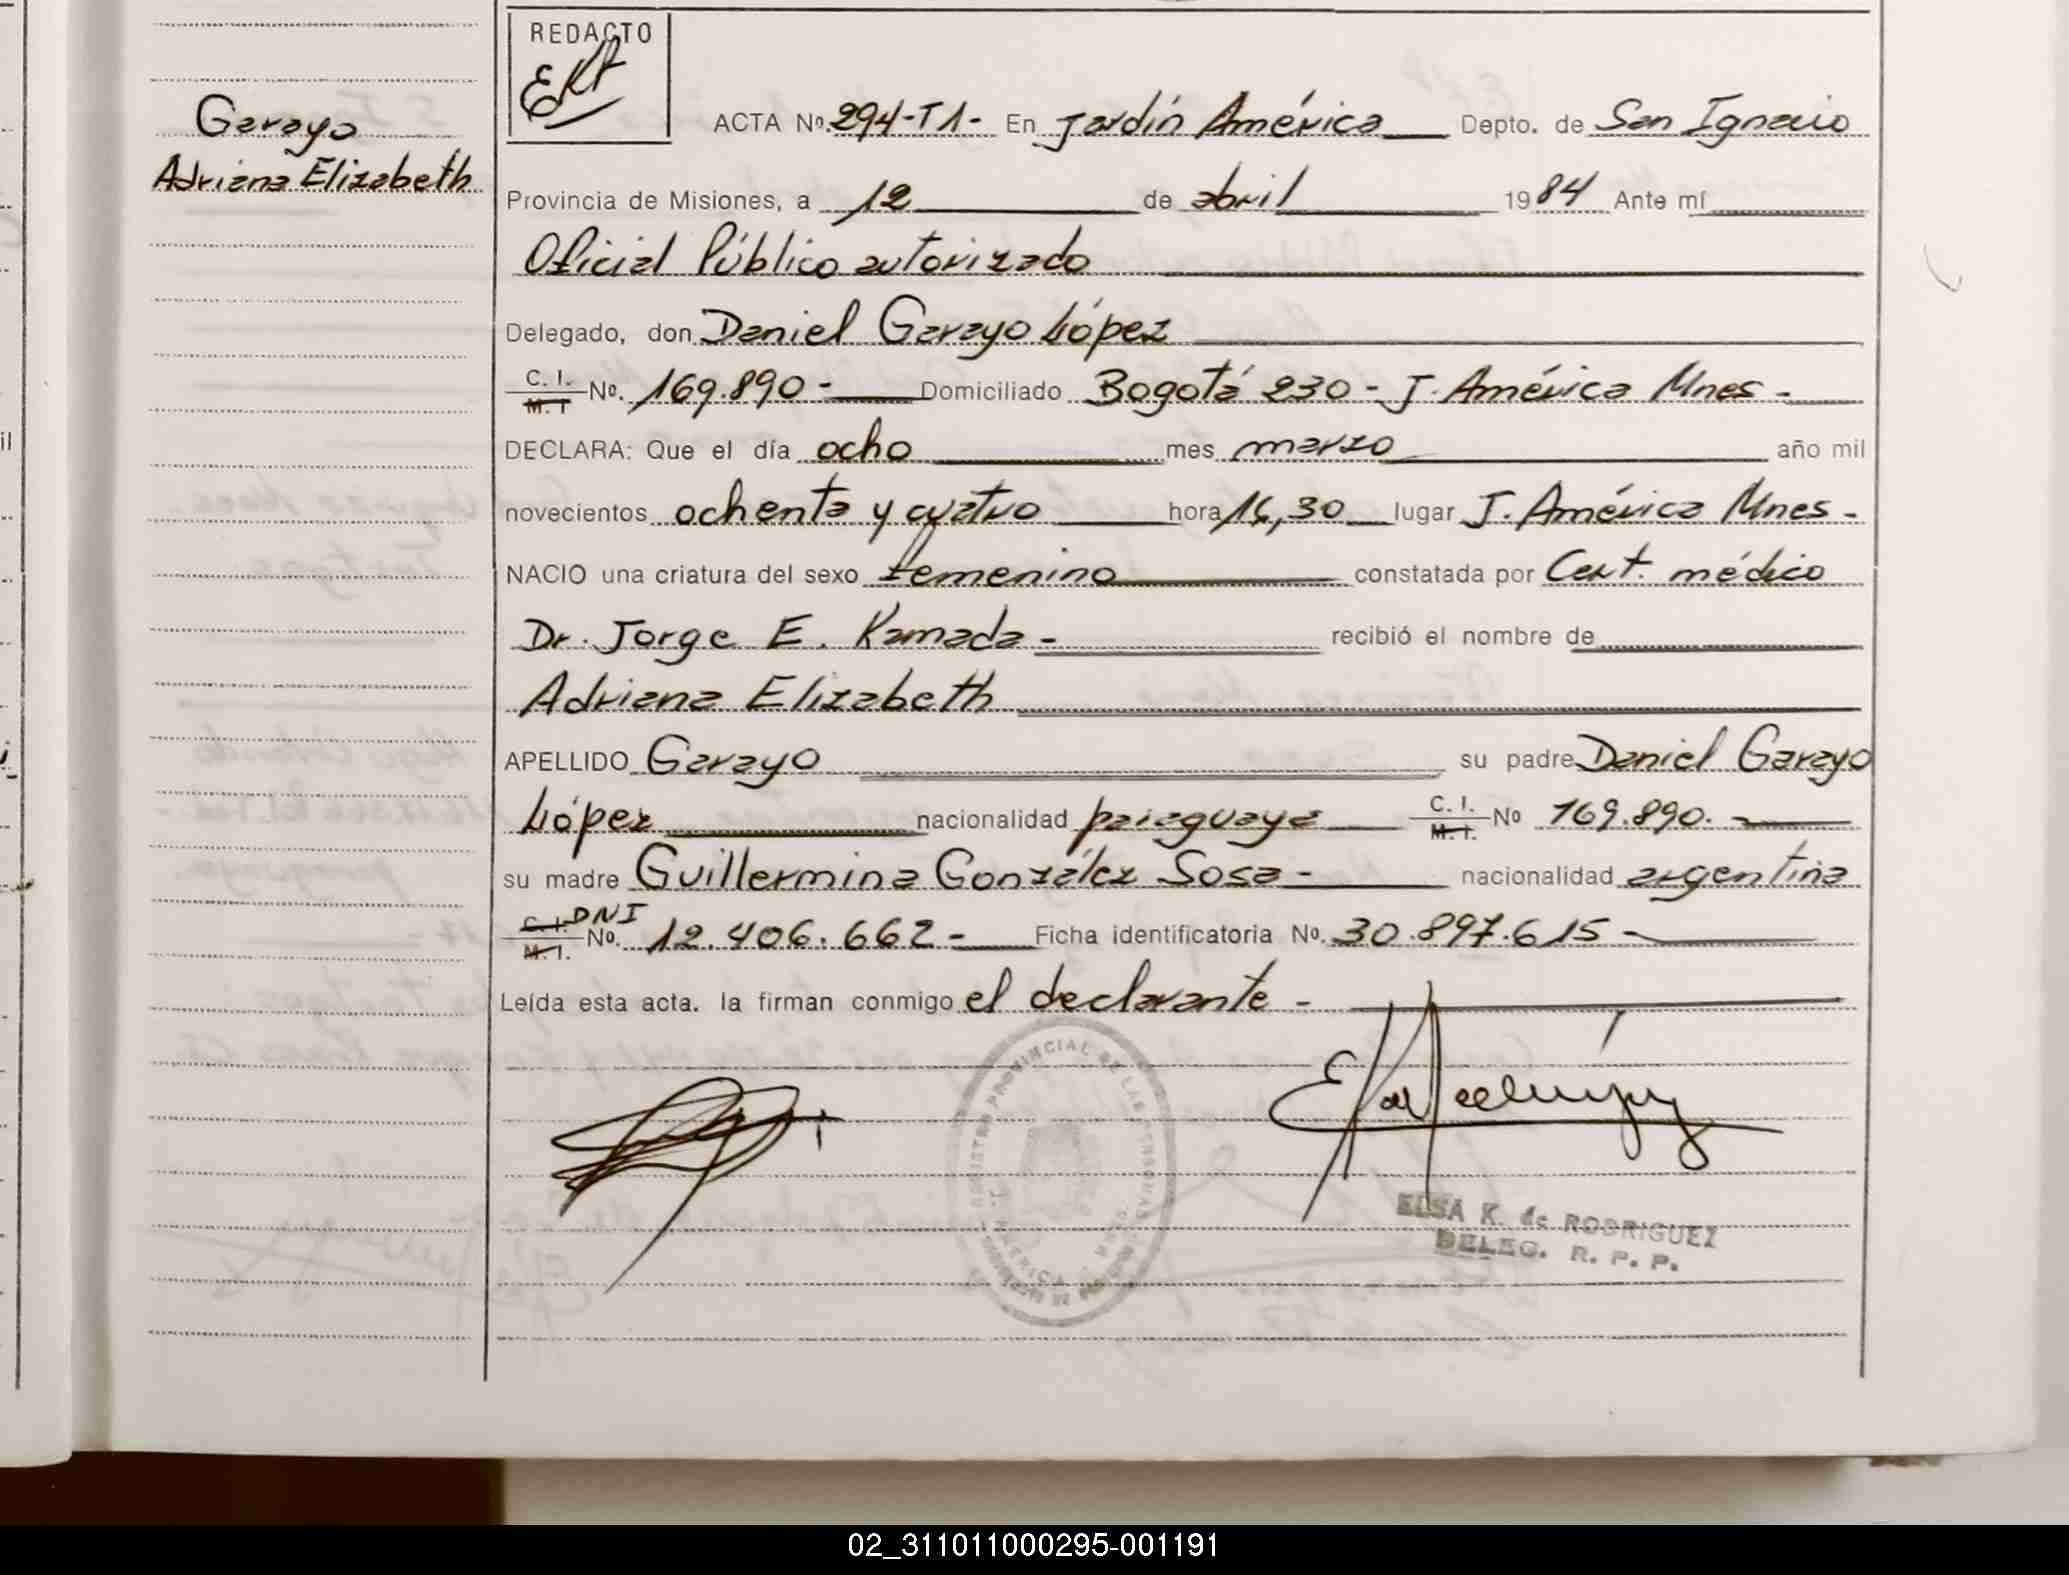 REDACTO
EKR
Garayo
Adriana Elizabeth
ACTA Nº. 294-T1- En Jardín América Depto. de San Ignacio
Provincia de Misiones, a 12 de abril 1984 Ante mí
Oficial Público autorizado
Delegado, don Daniel Garayo López
C. I. M. I Nº. 169.890- Domiciliado Bogotá 230 - J. América Mnes -
DECLARA: Que el día ocho mes marzo año mil
novecientos ochenta y cuatro hora 16,30 lugar J. América Mnes -
NACIO una criatura del sexo femenino constatada por Cert. médico
Dr. Jorge E. Kamada - recibió el nombre de
Adriana Elizabeth
APELLIDO Garayo su padre Daniel Garayo
López nacionalidad paraguaya C. I. M. I. Nº 169.890.
su madre Guillermina González Sosa - nacionalidad argentina
C. I. DNI M. I. Nº. 12.406.662 - Ficha identificatoria Nº. 30.897.615 -
Leída esta acta. la firman conmigo el declarante -
REGISTRO PROVINCIAL DE LAS PERSONAS
ELSA K. de RODRIGUEZ
DELEG. R. P. P.
02_311011000295-001191